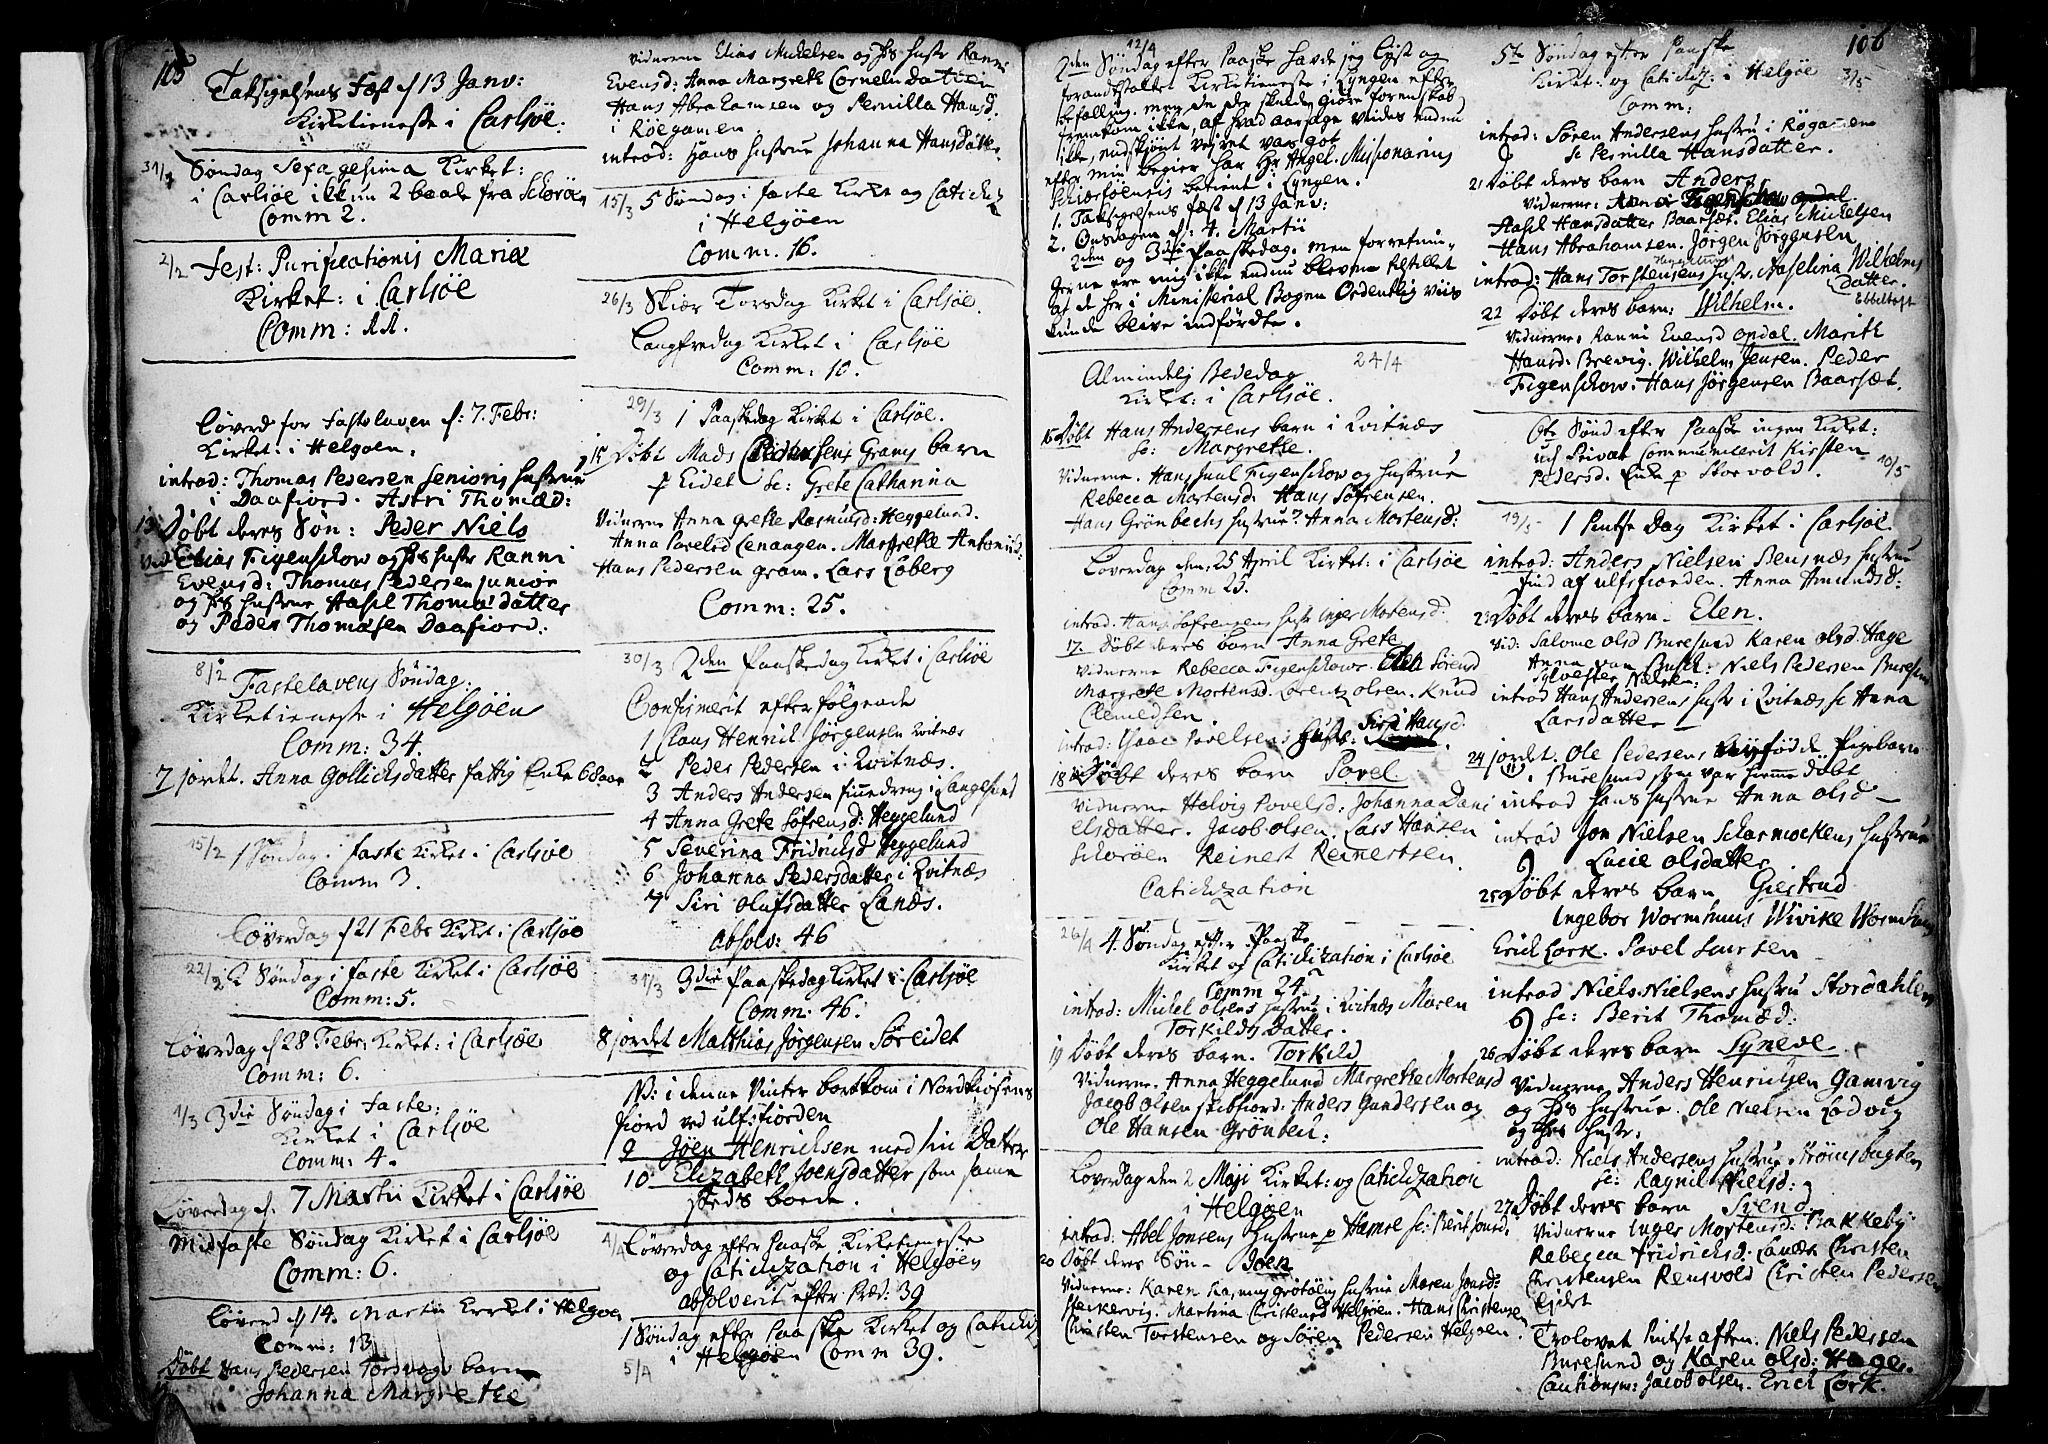 105
Taksigelsens Fæst d 13 Janv:
Kirketieneste i Carlsöe.
31/1 Søndag Sexagesima Kirket:
i Carlsöe ikkun 2 baade fra Schorøen
Comm 2.
2/2 Fest: Purificationis Mariæ
Kirket: i Carlsöe
Comm: 22.
Løverd for Fastelaven d: 7. Febr:
Kirket: i Helgøen.
introd: Thomas Pedersen Senioris hustrue
i Daafiord. Astri Thomæd:
13 Döbt deres Søn: Peder Niels
vid Elias Figenschow og hs hustr Ranni
Evensd: Thomas Pedersen junior
og hs hustrue Aasel Thomasdatter
og Peder Thomasen Daafiord.
8/2 Fastelavens Søndag.
Kirketieneste i Helgöen
Comm: 34.
7 jordet. Anna Gollichsdatter fattig Enke 68 aar
15/2 1 Søndag i faste Kirket i Carlsöe
Comm 3.
Løverdag d 21 Febr Kirket i Carlsöe
22/2 2 Søndag i faste Kirket i Carlsöe
Comm: 5.
Løverdag d 28 Febr: Kirket: i Carlsöe
Comm: 6.
1/3 3die Søndag i Faste:
Kirket i Carlsöe
Comm: 4.
Løverdag d. 7 Martii Kirket i Carlsöe
Midfaste Søndag Kirket i Carlsöe
Comm: 6.
Løverd d 14. Martii Kirket i Helgøen
Comm: 13
Döbt Hans Pedersen Torsvogs barn
Johanna Margrethe
vidnerne Elias Mickelsen og hs hustr Ranni
Evensd: Anna Margreth Cornelius datter
Hans Abrahamsen og Pernilla Hansd.
i Røegamen
introd: Hans hustrue Johanna Hansdatter.
15/3 5 Søndag i faste Kirket og Catichiz
i Helgöen
Comm: 16.
26/3 Skiær Torsdag Kirket i Carlsöe.
Langfredag Kirket i Carlsöe
Comm: 10.
29/3 1 Paaskedag Kirket i Carlsöe.
15 Döbt Mads Pedersens Grams barn
p Eidet sc: Grete Catharina
Vidnerne Anna grethe Rasmusd: Heggelund.
Anna Povelsd Cenangen. Margrethe Antonid:
Hans Pedersen gram. Lars Loberg
Comm: 25.
30/3 2den Paaskedag Kirket i Carlsöe
Confirmerit efterfölgende
1 Claus Henrich Jörgensen Kvitnæs
2 Peder Pedersen i Kvitnæs.
3 Anders Andersen finnedreng i Langesund
4 Anna Grete Søfrensd: Heggelund
5 Severina Fridrichsd Heggelund
6 Johanna Pedersdatter i Kvitnæs
7 Siri Olufsdatter Lanæs.
Absolv: 46
31/3 3die Paaskedag Kirket i Carlsöe
Comm: 46.
8 jordet Matthias Jørgensen Søreidet
NB: i denne Vinter bortkom i Nordkiosens
fiord ved ulfsfiorden
9 Jöen Henrichsen med sin Datter
10 Elizabeth Joensdatter som samme
steds boede.
4/4 Løverdag efter Paaske Kirketieneste
og Catichization i Helgöen
absolverit efter Præd: 39
1 Søndag efter Paaske Kirket og Catichiz
5/4 i Helgøen Comm 39.
12/4
2den Søndag efter Paaske havde jeg lyst og
foranstaltet Kirketieneste i Lyngen efter
befalling. men de der skulde giøre forenskab
fremkom ikke, af hvad aarsage vides endnu
ikke, endskjønt vejret var got
efter min begier har Hr Angel. Missionarius
Schiersöensis betient i Lyngen.
1. Taksigelsens fæst d 13 Janv:
2. Onsdagen d: 4. Martii
2den og 3die Paaskedag. men forretnin-
gerne ere mig ikke endnu blevne tilstillet
at de her i Ministerial Bogen Ordentlig viis
kunde blive indførdte.
Almindelig Bededag 24/4
Kirket: i Carlsöe.
16 Döbt Hans Andersens barn i Kvitnæs
sc: Margrethe.
Vidnerne. Hans Juul Figenschow og hustrue
Rebecca Mortensd: Hans Søfrensen.
Hans Grönbechs hustrue. Anna Mortensd:
Løverdag den 25 April Kirket: i Carlsöe
Comm 23.
introd: Hans Søfrensens hustr Inger Mortensd.
17. Döbt deres barn Anna Grete
vidnerne Rebecca Figenschow. Elen Sörensd
Margrete Mortensd. Lorentz olsen. Knud
Clemedsen
introd: Isaac Povelsens hustr: Siri Hansd.
18 Döbt deres barn Povel
vidnerne Helvig Povelsd: Johanna Dani
elsdatter. Jacob olsen. Lars Hansen
Schorøen Reinert Reinertsen.
Catichization
26/4 4. Søndag efter Paaske
Kirket og Catichization i Carlsöe
Comm 24
introd: Michel olsens hustrue i Kvitnæs Maren
Torkilds datter.
19 Döbt deres barn. Torkild
Vidnerne. Anna Heggelund Margrethe Mortensd
Jacob olsen skibfiord: Anders Gundersen og
Ole Hansen Grönbech:
Løverdag den 2 Maji Kirket: og Catichization
i Helgöen
introd: Abel Jonsens hustrue p Hamre sc: Berit Jonsd:
20 Döbt deres Søn - Joen
Vidnerne: Karen hustrue Maren Jonsd:
Martina Christensd Helgöen. Hans Christensen
Christen Torstensen og Søren Pedersen Helgöen.
106
5te Søndag efter Paaske
Kirket: og Catichiz: i Helgöe 3/5
Comm:
introd: Søren Andersens hustru i Røgamen
sc Pernilla Hansdatter.
21 Döbt deres barn Anders
Vidnerne:
Aasel Hansdatter Baarsæt. Elias Mickelsen
Hans Abrahamsen. Jørgen Jørgensen
introd: Hans Torstensens hustr. Aaselina Wilhelms
datter.
22 Döbt deres barn: Wilhelm. Ebbeltoft
Vidnerne: Ranni Evensd Opdal. Marith
Hansd: Brevig. Wilhelm Jensen. Peder
Figenschow. Hans Jörgensen Baarsæt.
6te Sønd efter Paaske ingen Kirket:
Privat Communicerit Kirsten
Pedersd. Enke p Storvold 10/5
19/5 1 Pintse Dag Kirket i Carlsöe.
introd: Anders Nielsen Bensnæs hustrue
find af ulfsfiorden. Anna Amundsd:
23 Döbt deres barn. Elen.
vid: Salome olsd Buresund Karen olsd. Hage
Anna von Busch: Niels Pedersen Buresun
Sylvester Nielsen:
introd Hans Andersens hustr i Kvitnæs sc Anna
Larsdatter
24 jordet. Ole Pedersens nyfødde Pigebarn
11 i Buresund som var hiemmedöbt
introd hans hustrue Anna olsd -
introd Jon Nielsen Scharmockens hustrue
Lucie olsdatter
25 Döbt deres barn Giertrud
Ingebor Wormhuus Wivike Wormhuus
Erich Lork. Povel Laursen
introd Niels Nielsens hustru Stordahlen
sc: Berit Thomæd:
26 Döbt deres barn Syneve
Vidnerne Anders Henrichsen Gamvig
og hs hustrue. Ole Nielsen Lodvig
og hs hustr:
introd: Niels Andersens hustrue Strömsbugten
sc: Ragnil Nielsd:
27 Döbt deres barn Svend
Vidnerne Inger Mortensd: Bakkeby
Rebecca Fridrichsd: Lanæs Christen
Christensen Rensvold Christen Pedersen
Eidet
Trolovet Pintse aften. Niels Pedersen
Buresund og Karen olsd: Hage.
Cautionsm: Jacob olsen. Erich Lork.